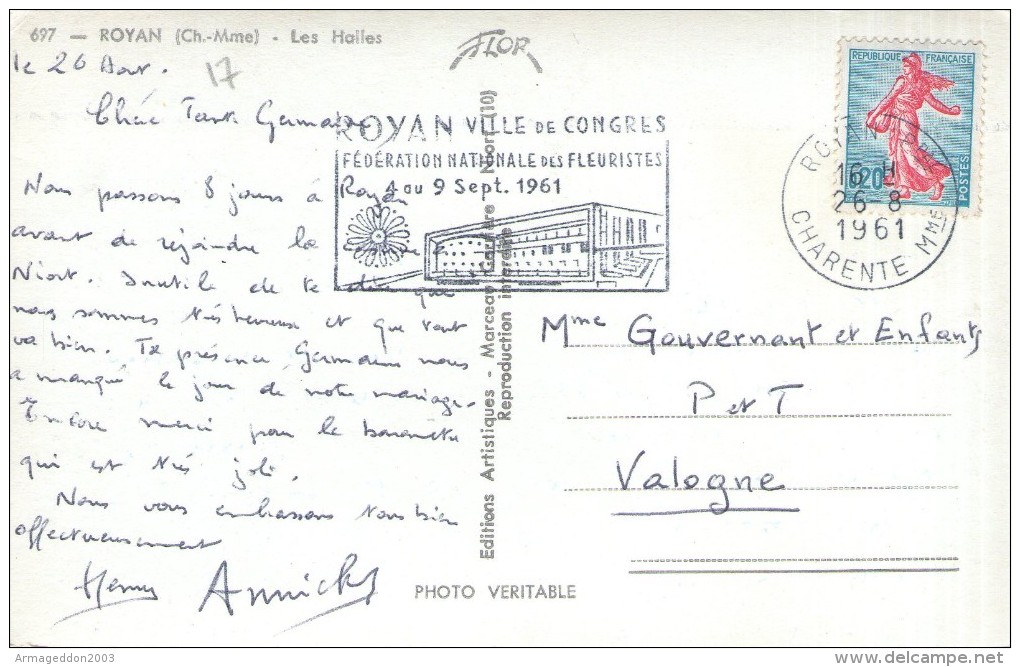 697 — ROYAN (Ch.-Mme) - Les Halles
FLOR
le 26 Aout.
17
Chère Tante Germaine
Nous passons 8 jours à Royan
avant de rejoindre la
Niort. Inutile de te dire que
nous sommes très heureux et que tout
va bien. Ta présence Germaine nous
a manqué le jour de notre mariage.
Encore merci pour le baromètre
qui est très joli.
Nous vous embrassons tous bien
affectueusement
Annick
ROYAN VILLE DE CONGRES
FÉDÉRATION NATIONALE DES FLEURISTES
4 au 9 Sept. 1961
REPUBLIQUE FRANÇAISE
0,20
POSTES
ROYAN
16 H
26 - 8
1961
CHARENTE MME
Editions Artistiques - Marcean Carrière Niort (10)
Reproduction interdite
Mme Gouvernant et Enfants
P et T
Valogne
PHOTO VERITABLE
Armageddon2003
delcampe.net